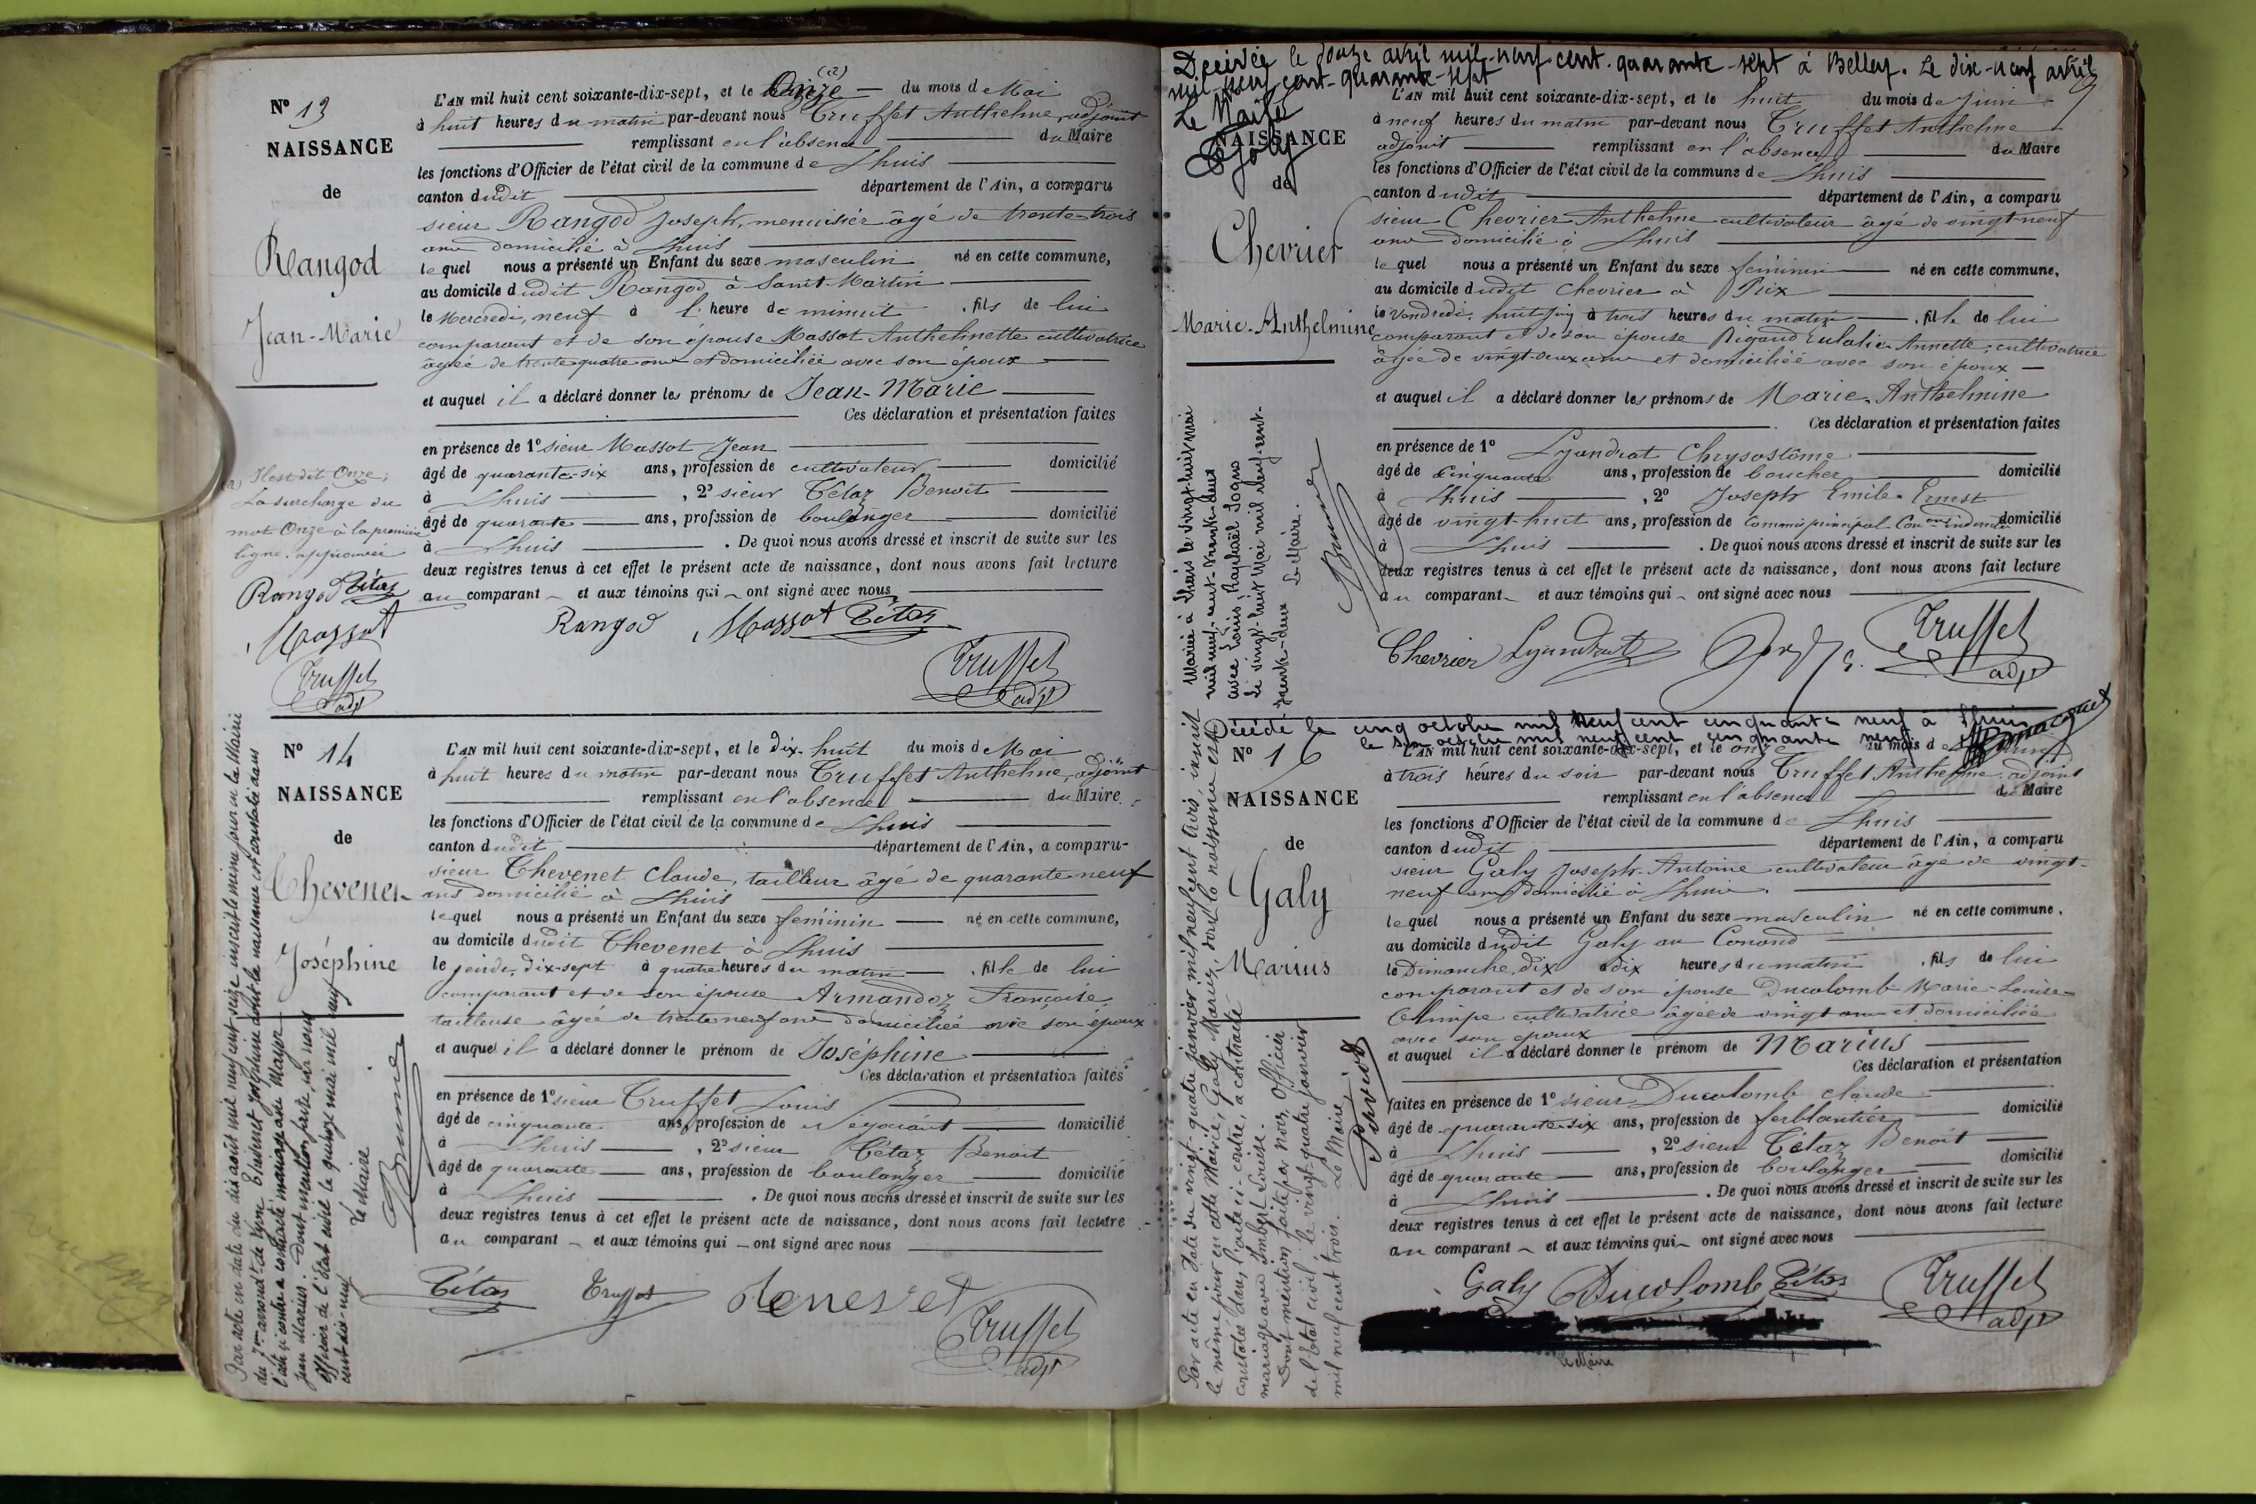 N° 13
NAISSANCE
de
Rangod
Jean-Marie
(a) Il est dit Onze;
La surcharge du
mot Onze à la première
ligne approuvée
Rangod Tétaz
Massot
Truffet
adjt
L'AN mil huit cent soixante-dix-sept, et le Onze (a) du mois de Mai
à huit heures du matin par-devant nous Truffet Anthelme, adjoint
remplissant en l'absence du Maire
les fonctions d'Officier de l'état civil de la commune de Lhuis
canton dudit département de l'Ain, a comparu
sieur Rangod Joseph, menuisier âgé de trente-trois
ans domicilié à Lhuis
lequel nous a présenté un Enfant du sexe masculin né en cette commune,
au domicile dudit Rangod à Saint-Martin
le Mercredi, neuf à l' heure de minuit , fils de lui
comparant et de son épouse Massot Anthelmette cultivatrice
âgée de trente quatre ans et domiciliée avec son époux
et auquel il a déclaré donner les prénoms de Jean-Marie
Ces déclaration et présentation faites
en présence de 1° sieur Massot Jean
âgé de quarante-six ans, profession de cultivateur domicilié
à Lhuis , 2° sieur Tétaz Benoit
âgé de quarante ans, profession de boulanger domicilié
à Lhuis . De quoi nous avons dressé et inscrit de suite sur les
deux registres tenus à cet effet le présent acte de naissance, dont nous avons fait lecture
au comparant et aux témoins qui ont signé avec nous
Rangod Massot Tétaz
Truffet
adjt
N° 14
NAISSANCE
de
Thevenet
Joséphine
L'AN mil huit cent soixante-dix-sept, et le dix-huit du mois de Mai
à huit heures du matin par-devant nous Truffet Anthelme, adjoint
remplissant en l'absence du Maire
les fonctions d'Officier de l'état civil de la commune de Lhuis
canton dudit département de l'Ain, a comparu
sieur Thevenet Claude, tailleur âgé de quarante neuf
ans domicilié à Lhuis
lequel nous a présenté un Enfant du sexe féminin né en cette commune,
au domicile dudit Thevenet à Lhuis
le jeudi, dix-sept à quatre heures du matin , fille de lui
comparant et de son épouse Armandoz Françoise,
tailleuse âgée de trente neuf ans domiciliée avec son époux
et auquel il a déclaré donner le prénom de Joséphine
Ces déclaration et présentation faites
en présence de 1° sieur Truffet Louis
âgé de cinquante ans, profession de Négociant domicilié
à Lhuis , 2° sieur Tétaz Benoit
âgé de quarante ans, profession de boulanger domicilié
à Lhuis . De quoi nous avons dressé et inscrit de suite sur les
deux registres tenus à cet effet le présent acte de naissance, dont nous avons fait lecture
au comparant et aux témoins qui ont signé avec nous
Tétaz Truffet Thenevet
Truffet
adjt
Par acte en date du dix août mil neuf cent seize inscrit le même jour en la Mairie
du 7me arrondt de Lyon Thevenet Joséphine dont la naissance est constatée dans
l'acte ci contre a contracté mariage avec Mayer
Jean Marius. Dont mention faite par nous
officier de l'Etat civil le quinze mai mil neuf
cent dix-neuf
Le Maire
Décédée le douze avril mil-neuf cent-quarante-sept à Belley. Le dix-neuf avril
mil neuf cent-quarante-sept
Le Maire
NAISSANCE
de
Chevrier
Marie-Anthelmine
L'AN mil huit cent soixante-dix-sept, et le huit du mois de Juin
à neuf heures du matin par-devant nous Truffet Anthelme
adjoint remplissant en l'absence du Maire
les fonctions d'Officier de l'état civil de la commune de Lhuis
canton dudit département de l'Ain, a comparu
sieur Chevrier Anthelme cultivateur âgé de vingt-neuf
ans domicilié à Lhuis
lequel nous a présenté un Enfant du sexe féminin né en cette commune,
au domicile dudit Chevrier à Rix
le Vendredi, huit Juin à trois heures du matin , fille de lui
comparant et de son épouse Rigaud Eulalie-Annette, cultivatrice
âgée de vingt-deux ans et domiciliée avec son époux
et auquel il a déclaré donner les prénoms de Marie-Anthelmine
Ces déclaration et présentation faites
en présence de 1° Lyandrat Chrysostôme
âgé de Cinquante ans, profession de boucher domicilié
à Lhuis , 2° Joseph Emile-Ernest
âgé de vingt-huit ans, profession de Commis principal domicilié
à Lhuis . De quoi nous avons dressé et inscrit de suite sur les
deux registres tenus à cet effet le présent acte de naissance, dont nous avons fait lecture
au comparant et aux témoins qui ont signé avec nous
Chevrier Lyandrat
Truffet
adjt
Mariée à Lhuis le vingt-huit mai
mil neuf-cent-trente-deux
avec Louis Raphaël Sogno
Le vingt-huit Mai mil neuf-cent-
trente-deux Le Maire.
Décédé le cinq octobre mil neuf cent cinquante neuf à Lhuis
le six octobre mil neuf cent cinquante neuf
N° 16
NAISSANCE
de
Galy
Marius
L'AN mil huit cent soixante-dix-sept, et le onze du mois de Juin
à trois heures du soir par-devant nous Truffet Anthelme adjoint
remplissant en l'absence du Maire
les fonctions d'Officier de l'état civil de la commune de Lhuis
canton dudit département de l'Ain, a comparu
sieur Galy Joseph-Antoine cultivateur âgé de vingt-
neuf ans domicilié à Lhuis
lequel nous a présenté un Enfant du sexe masculin né en cette commune,
au domicile dudit Galy au Conand
le Dimanche, dix à dix heures du matin , fils de lui
comparant et de son épouse Ducolomb Marie-Louise-
Olimpe cultivatrice âgée de vingt ans et domiciliée
avec son époux
et auquel il a déclaré donner le prénom de Marius
Ces déclaration et présentation
faites en présence de 1° sieur Ducolomb Claude
âgé de quarante-six ans, profession de ferblantier domicilié
à Lhuis , 2° sieur Tétaz Benoit
âgé de quarante ans, profession de boulanger domicilié
à Lhuis . De quoi nous avons dressé et inscrit de suite sur les
deux registres tenus à cet effet le présent acte de naissance, dont nous avons fait lecture
au comparant et aux témoins qui ont signé avec nous
Galy Ducolomb Tétaz
Truffet
adjt
Le Maire
Par acte en date du vingt-quatre janvier mil neuf cent trois, inscrit
le même jour en cette Mairie, Galy Marius, dont la naissance est
constatée dans l'acte ci-contre, a contracté
mariage avec Imbert Louise.
Dont mention faite par nous, Officier
de l'Etat civil le vingt-quatre janvier
mil neuf cent trois. Le Maire,